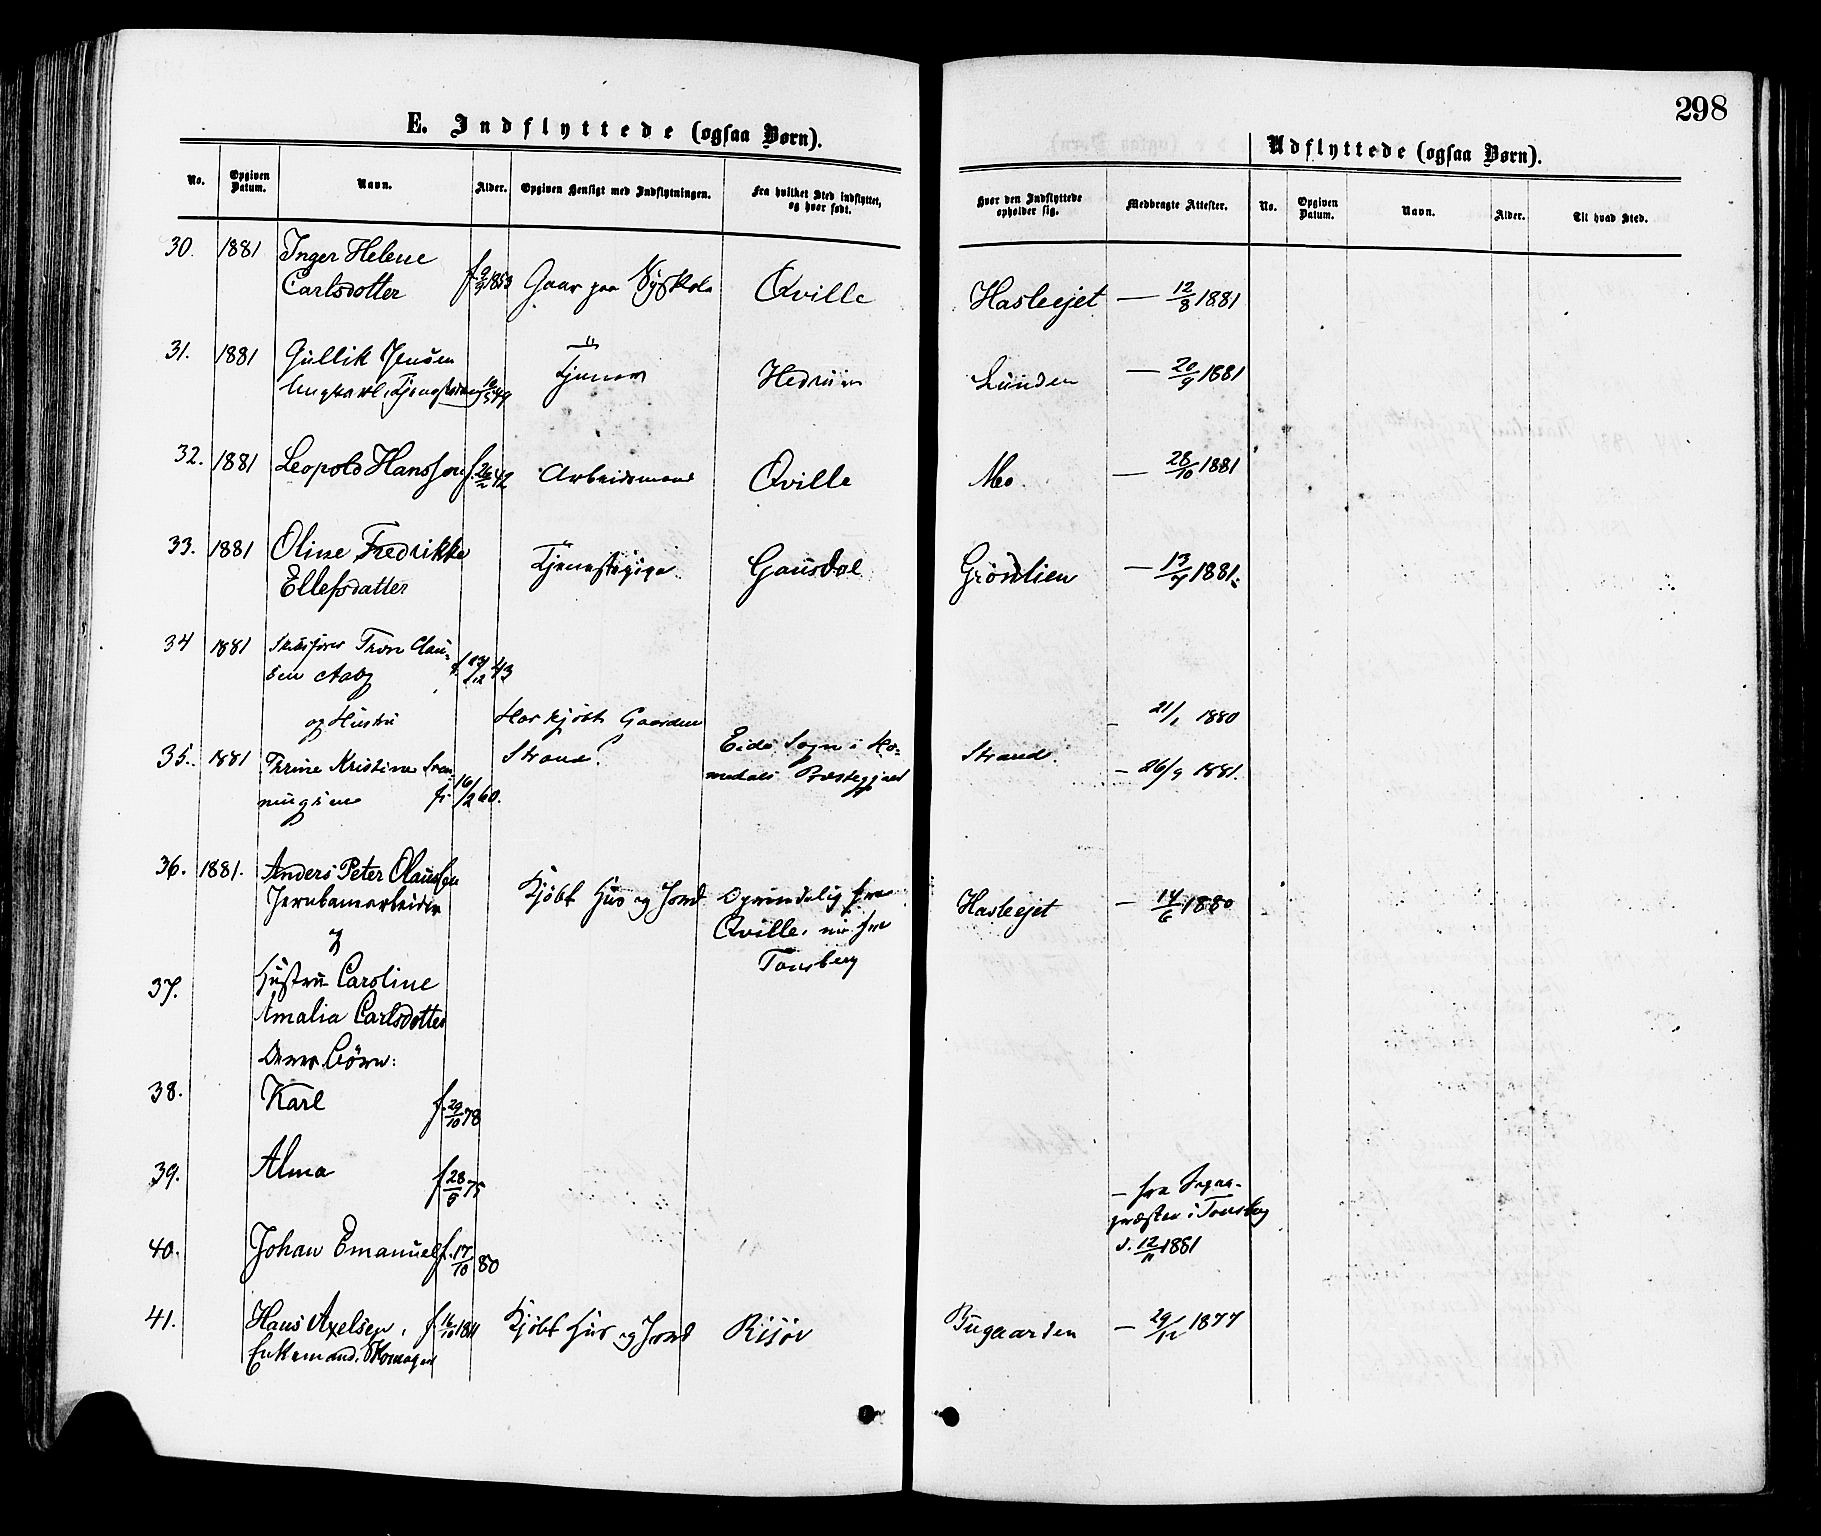 298
E. Indflyttede (ogsaa Børn).
Udflyttede (ogsaa Børn).
No.
Opgiven Datum.
Navn.
Alder.
Opgiven Hensigt med Indflytningen.
Fra hvilket Sted indflyttet, og hvor født.
Hvor den Indflyttede opholder sig.
Medbragte Attester.
No.
Opgiven Datum.
Navn.
Alder.
Til hvad Sted.
30. 1881 Inger Helene
Carlsdotter Gaar paa Syskole Qville Hasleejet — 12/8 1881
31. 1881 Gullik Jensen Tjener Hedrum Lunden — 20/9 1881
Ungkarl,
32. 1881 Leopold Hanssen f. 26/2 42 Arbeidsmand Qville Mo. — 28/10 1881
33. 1881 Oline Fredrikke Tjenestepige Gausdal Grønlien — 13/7 1881.
Ellefsdatter
34 1881 Skibsfører Thron Clau-
sen Aaby
og Hustru Har kjøbt Gaarden — 21/1 1880
35. 1881 Thrine Kristine Sven- Strand. Eids Sogn i Ho- Strand. — 26/9 1881.
ningsen f. 16/2 60. medals Præstegjæld
36. 1881. Anders Peter Olaussen Kjøbt Hus og Jord Oprindelig fra Hasleejet — 14/6 1880
Jernbanearbeider Qville, nu fra
og Tønsberg
37. Hustru Caroline
Amalia Carlsdotter
Deres Børn:
38. Karl f. 29/10 78
39. Alma f. 28/9 75 — fra Sogne-
præsten i Tønsberg
40. Johan Emanuel f. 17/10 80 d. 12/11 1881
41. Hans Axelsen, f. 16/10 1811 Kjøbt Hus og Jord Risør Bugaarden — 29/12 1877
Enkemand, Skomager